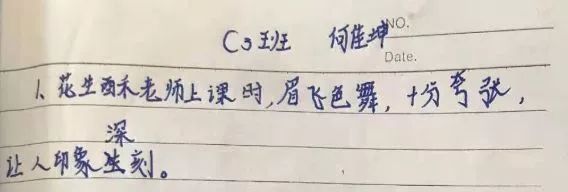 C3班 何佳坤
NO.
Date.
1、花生西禾老师上课时,眉飞色舞,十分夸张,
深
让人印象生刻。